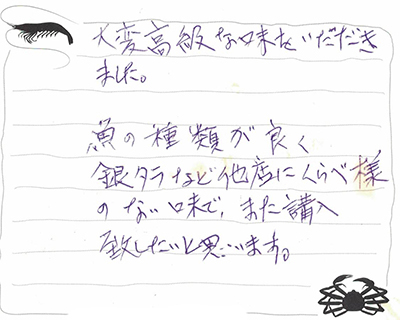 大変高級な味をいただき
ました。
魚の種類が良く
銀タラなど他店にくらべ様
のない味で、また購入
致したいと思います。